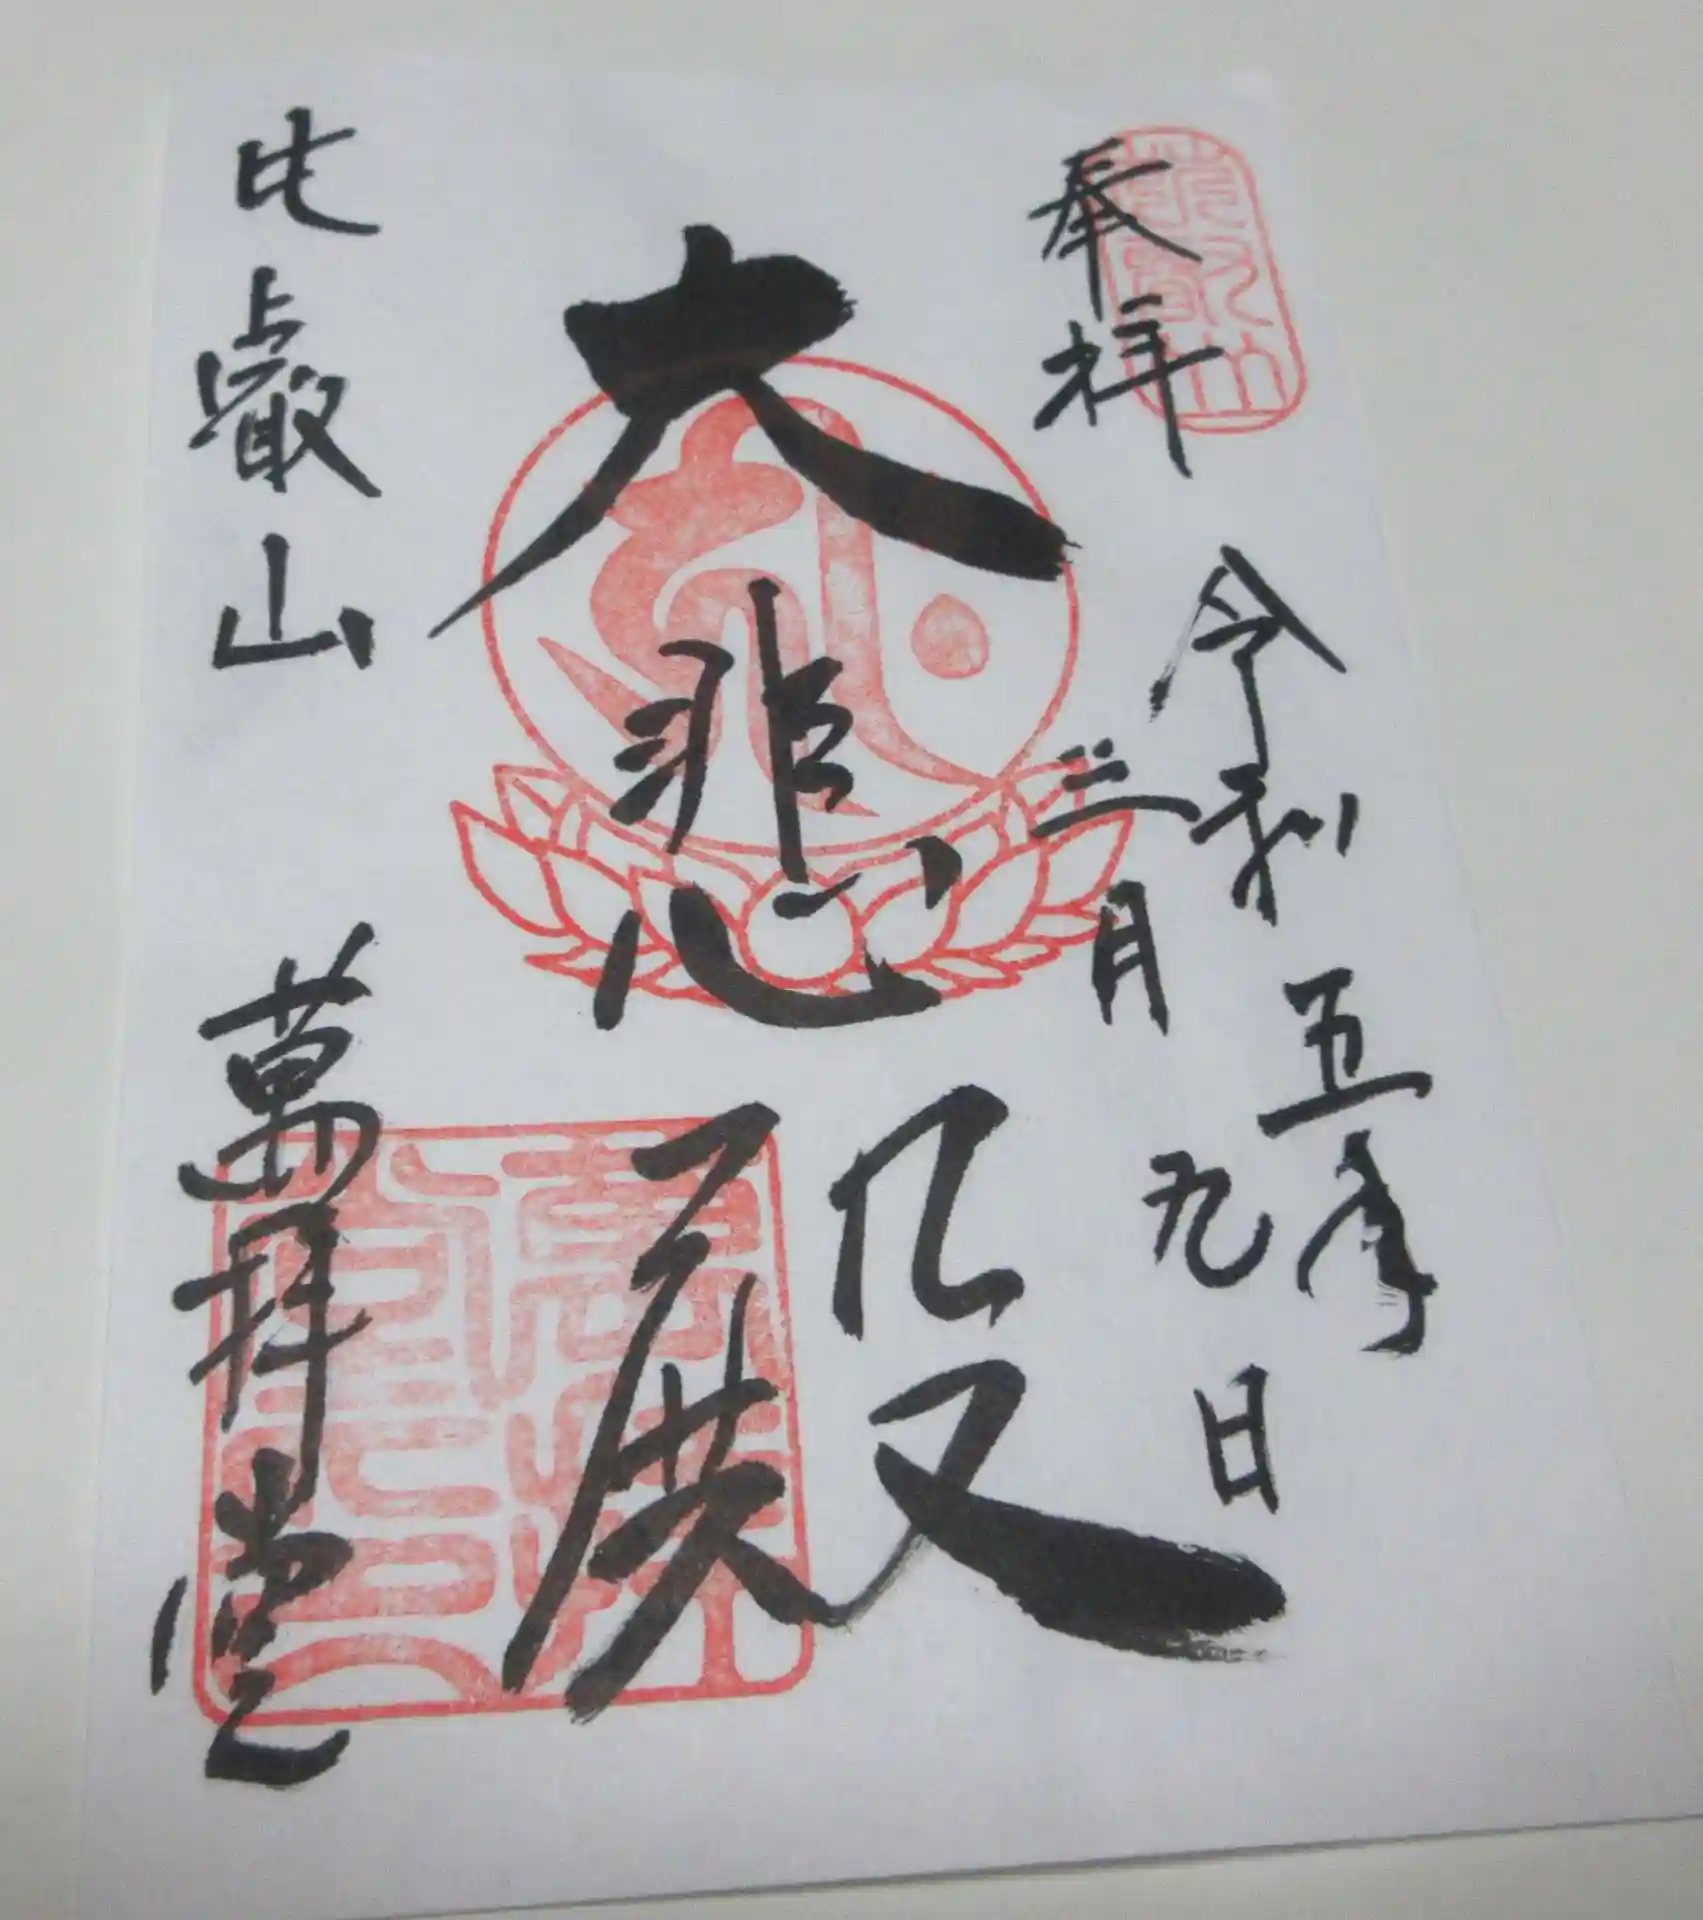 奉拝
令和五年
三月九日
大悲殿
比叡山
萬拝堂